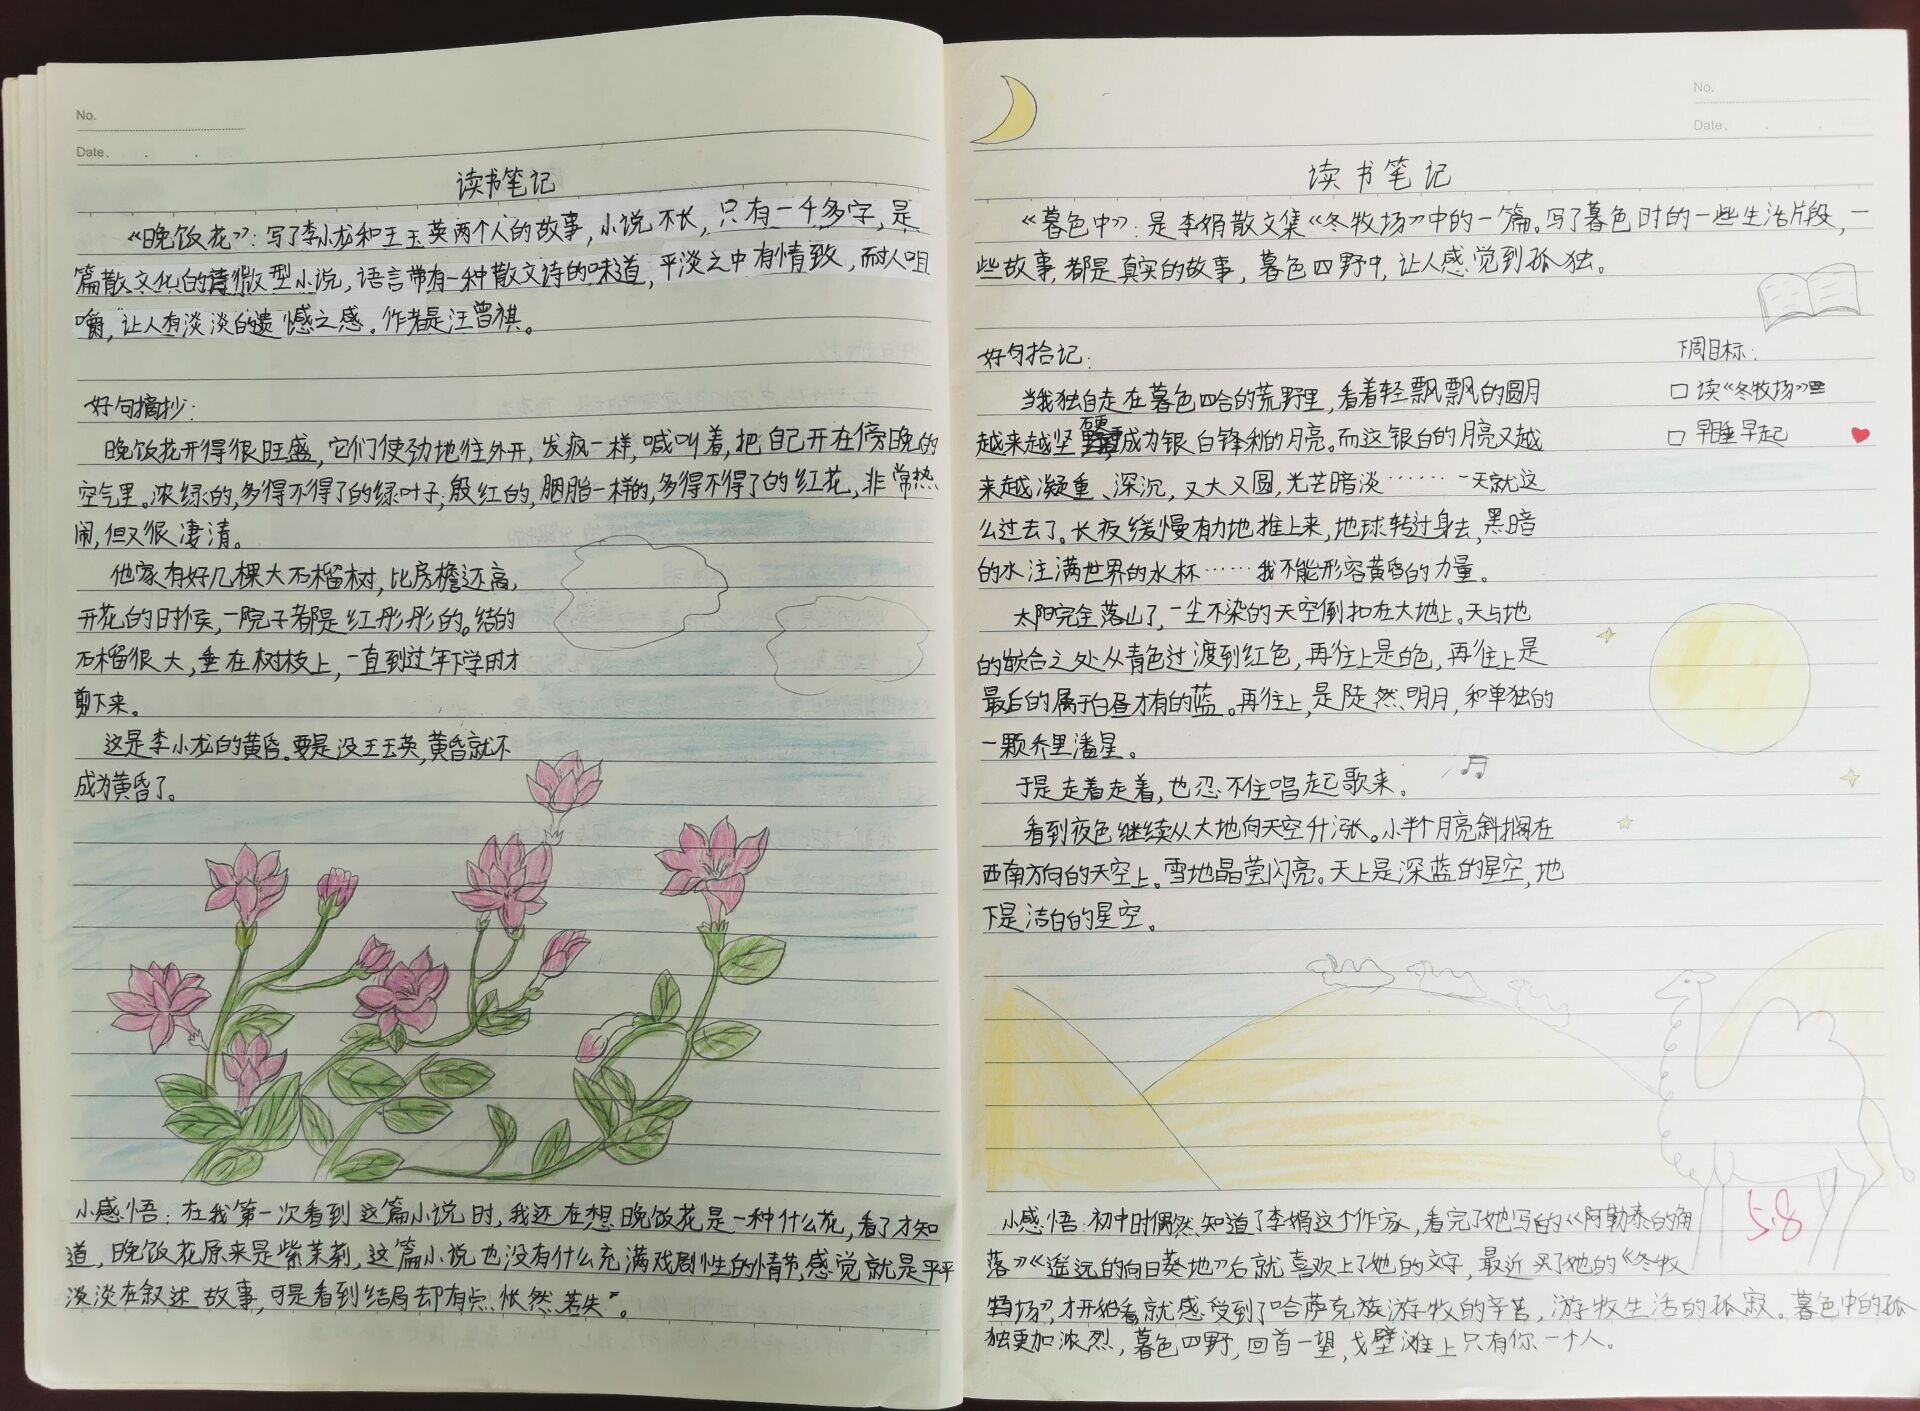 No.
Date.
读书笔记
《晚饭花》：写了李小龙和王玉英两个人的故事，小说不长，只有一千多字，是
篇散文化的诗微型小说，语言带有一种散文诗的味道，平淡之中有情致，耐人咀
嚼，让人有淡淡的遗憾之感。作者是汪曾祺。
好句摘抄：
晚饭花开得很旺盛，它们使劲地往外开，发疯一样，喊叫着，把自己开在傍晚的
空气里。浓绿的，多得不得了的绿叶子；殷红的，胭脂一样的，多得不得了的红花，非常热
闹，但又很凄清。
他家有好几棵大石榴树，比房檐还高，
开花的时候，一院子都是红彤彤的。结的
石榴很大，垂在树枝上，一直到过年下雪时才
剪下来。
这是李小龙的黄昏。要是没王玉英，黄昏就不
成为黄昏了。
小感悟：在我第一次看到这篇小说时，我还在想晚饭花是一种什么花，看了才知
道，晚饭花原来是紫茉莉，这篇小说也没有什么充满戏剧性的情节，感觉就是平平
淡淡在叙述故事，可是看到结局却有点“怅然若失”。
No.
Date.
读书笔记
《暮色中》：是李娟散文集《冬牧场》中的一篇。写了暮色时的一些生活片段，一
些故事，都是真实的故事，暮色四野中，让人感觉到孤独。
好句拾记：
下周目标：
□ 读《冬牧场》
□ 早睡早起
当我独自走在暮色四合的荒野里，看着轻飘飘的圆月
越来越坚硬成为银白锋利的月亮。而这银白的月亮又越
来越凝重、深沉，又大又圆，光芒暗淡……一天就这
么过去了。长夜缓慢有力地推上来，地球转过身去，黑暗
的水注满世界的水杯……我不能形容黄昏的力量。
太阳完全落山了，一尘不染的天空倒扣在大地上。天与地
的嵌合之处从青色过渡到红色，再往上是白色，再往上是
最后的属于白昼才有的蓝。再往上，是陡然明月，和单独的
一颗乔里潘星。
于是走着走着，也忍不住唱起歌来。
看到夜色继续从大地向天空升涨。小半个月亮斜搁在
西南方向的天空上。雪地晶莹闪亮。天上是深蓝的星空，地
下是洁白的星空。
小感悟：初中时偶然知道了李娟这个作家，看完了她写的《阿勒泰的角
落》《遥远的向日葵地》后就喜欢上了她的文字，最近买了她的《冬牧
场》，才开始看就感受到了哈萨克族游牧的辛苦，游牧生活的孤寂。暮色中的孤
独更加浓烈，暮色四野，回首一望，戈壁滩上只有你一个人。
5.8